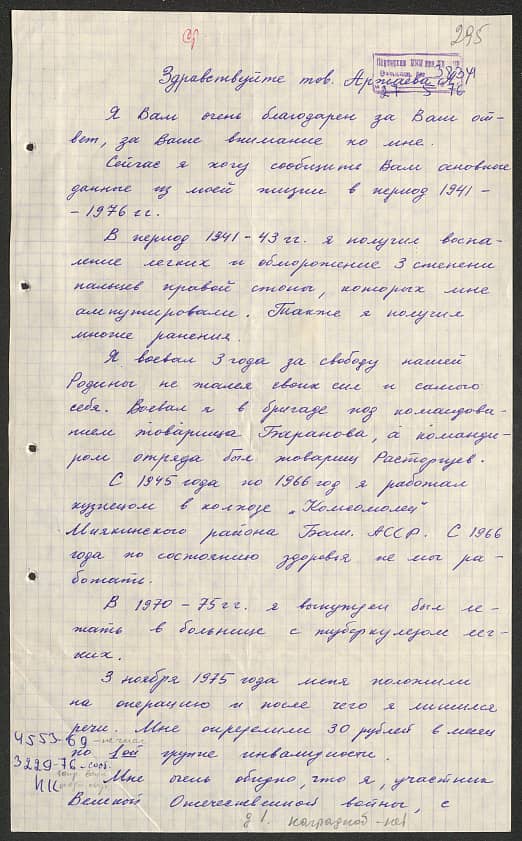 295
Здравствуйте тов. Аржаева
3834
27 5 76
Я Вам очень благодарен за Ваш от-
вет, за Ваше внимание ко мне.
Сейчас я хочу сообщить Вам основные
данные из моей жизни в период 1941 -
- 1976 гг.
В период 1941 - 43 гг. я получил воспа-
ление легких и обморожение 3 степени
пальцев правой стопы, которых мне
ампутировали. Также я получил
многие ранения.
Я воевал 3 года за свободу нашей
Родины не жалея своих сил и самого
себя. Воевал я в бригаде под командова-
нием товарища Баранова, а команди-
ром отряда был товарищ Расторгцев.
С 1945 года по 1966 год я работал
кузнецом в колхозе „Комсомолец"
Миякинского района Баш. АССР. С 1966
года по состоянию здоровья не мог ра-
ботать.
В 1970 - 75 гг. я вынужден был ле-
жать в больнице с туберкулезом лег-
ких.
3 ноября 1975 года меня положили
на операцию и после чего я лишился
речи. Мне определили 30 рублей в месяц
по 1ой группе инвалидности.
4553-69
3229-76
Мне очень обидно, что я, участник
Великой Отечественной войны, с
наградной - нет